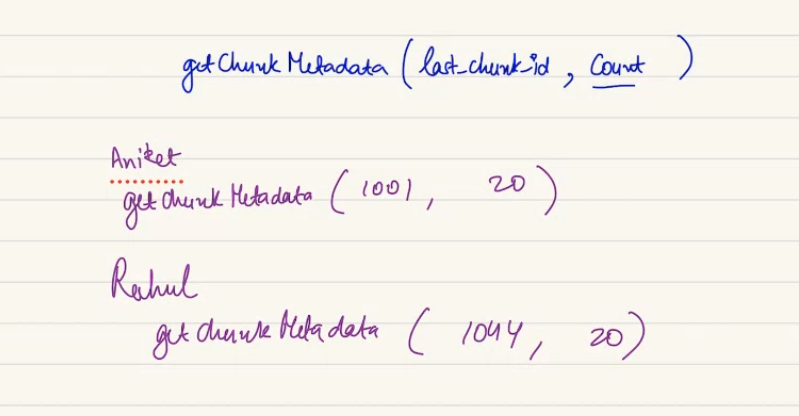 getChunkMetadata (last_chunk_id, Count)
Aniket
getChunkMetadata (1001, 20)
Rahul
getChunkMetadata (1044, 20)